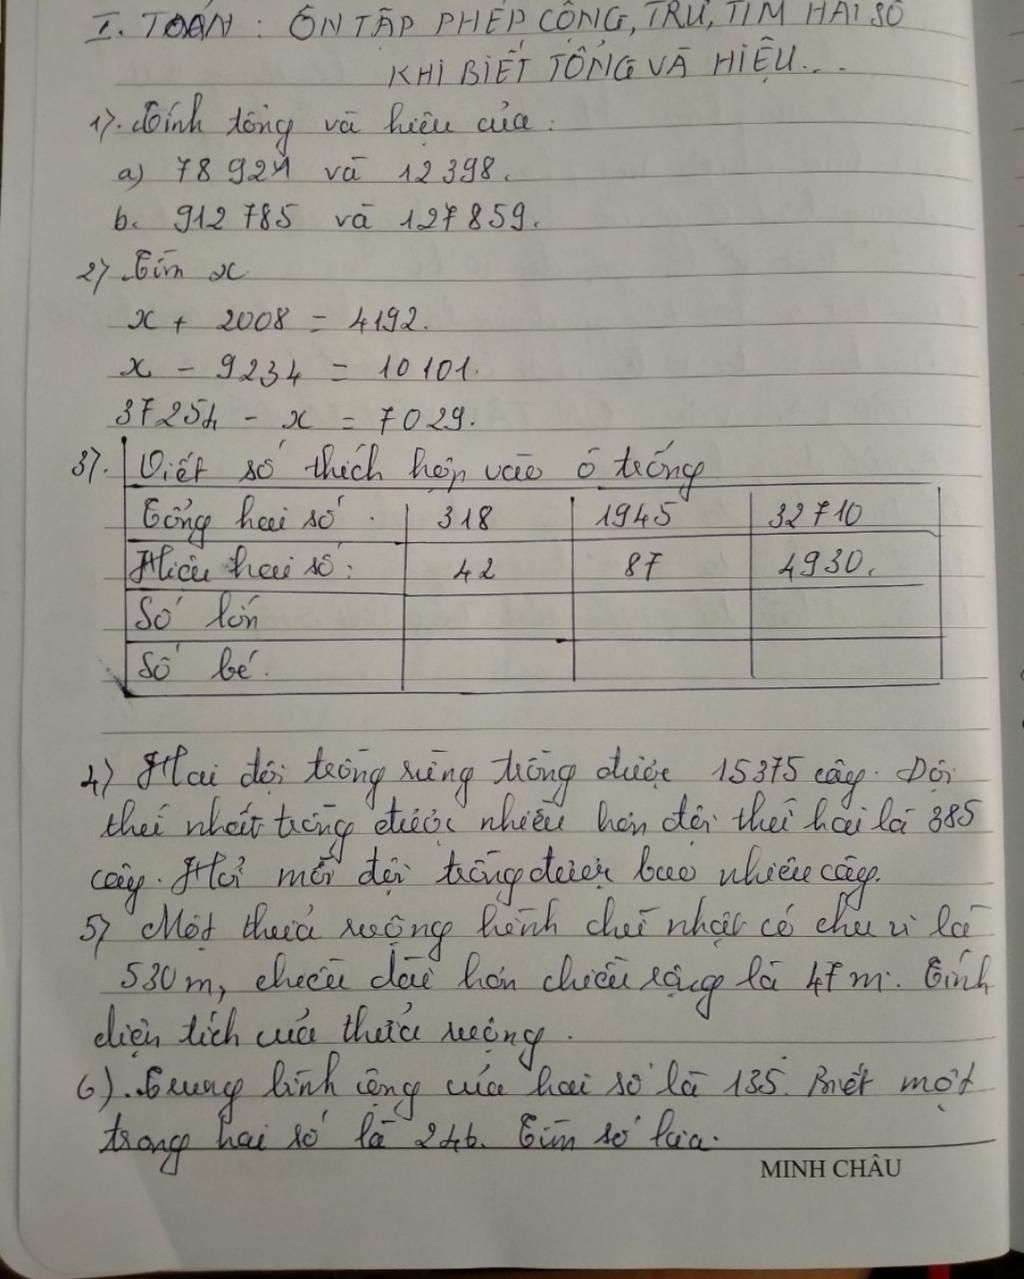 I. TOÁN : ÔN TẬP PHÉP CỘNG, TRỪ, TÌM HAI SỐ
KHI BIẾT TỔNG VÀ HIỆU...
1). Tính tổng và hiệu của :
a) 78 921 và 12 398.
b. 912 785 và 127 859.
2) Tìm x
x + 2008 = 4192.
x - 9234 = 10 101.
37254 - x = 7029.
3). Viết số thích hợp vào ô trống
Tổng hai số . 318 1945 32710
Hiệu hai số : 42 87 4930.
Số lớn
Số bé .
4) Hai đội trồng rừng trồng được 15375 cây. Đội
thứ nhất trồng được nhiều hơn đội thứ hai là 385
cây. Hỏi mỗi đội trồng được bao nhiêu cây.
5) Một thửa ruộng hình chữ nhật có chu vi là
530 m, chiều dài hơn chiều rộng là 47 m. Tính
diện tích của thửa ruộng .
6). Trung bình cộng của hai số là 135. Biết một
trong hai số là 246. Tìm số kia.
MINH CHÂU